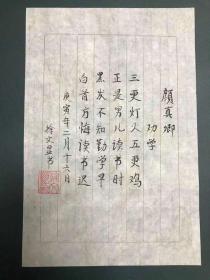 顔真卿
劝学
三更灯火五更鸡
正是男儿读书时
黑发不知勤学早
白首方悔读书迟
庚寅年二月十六日